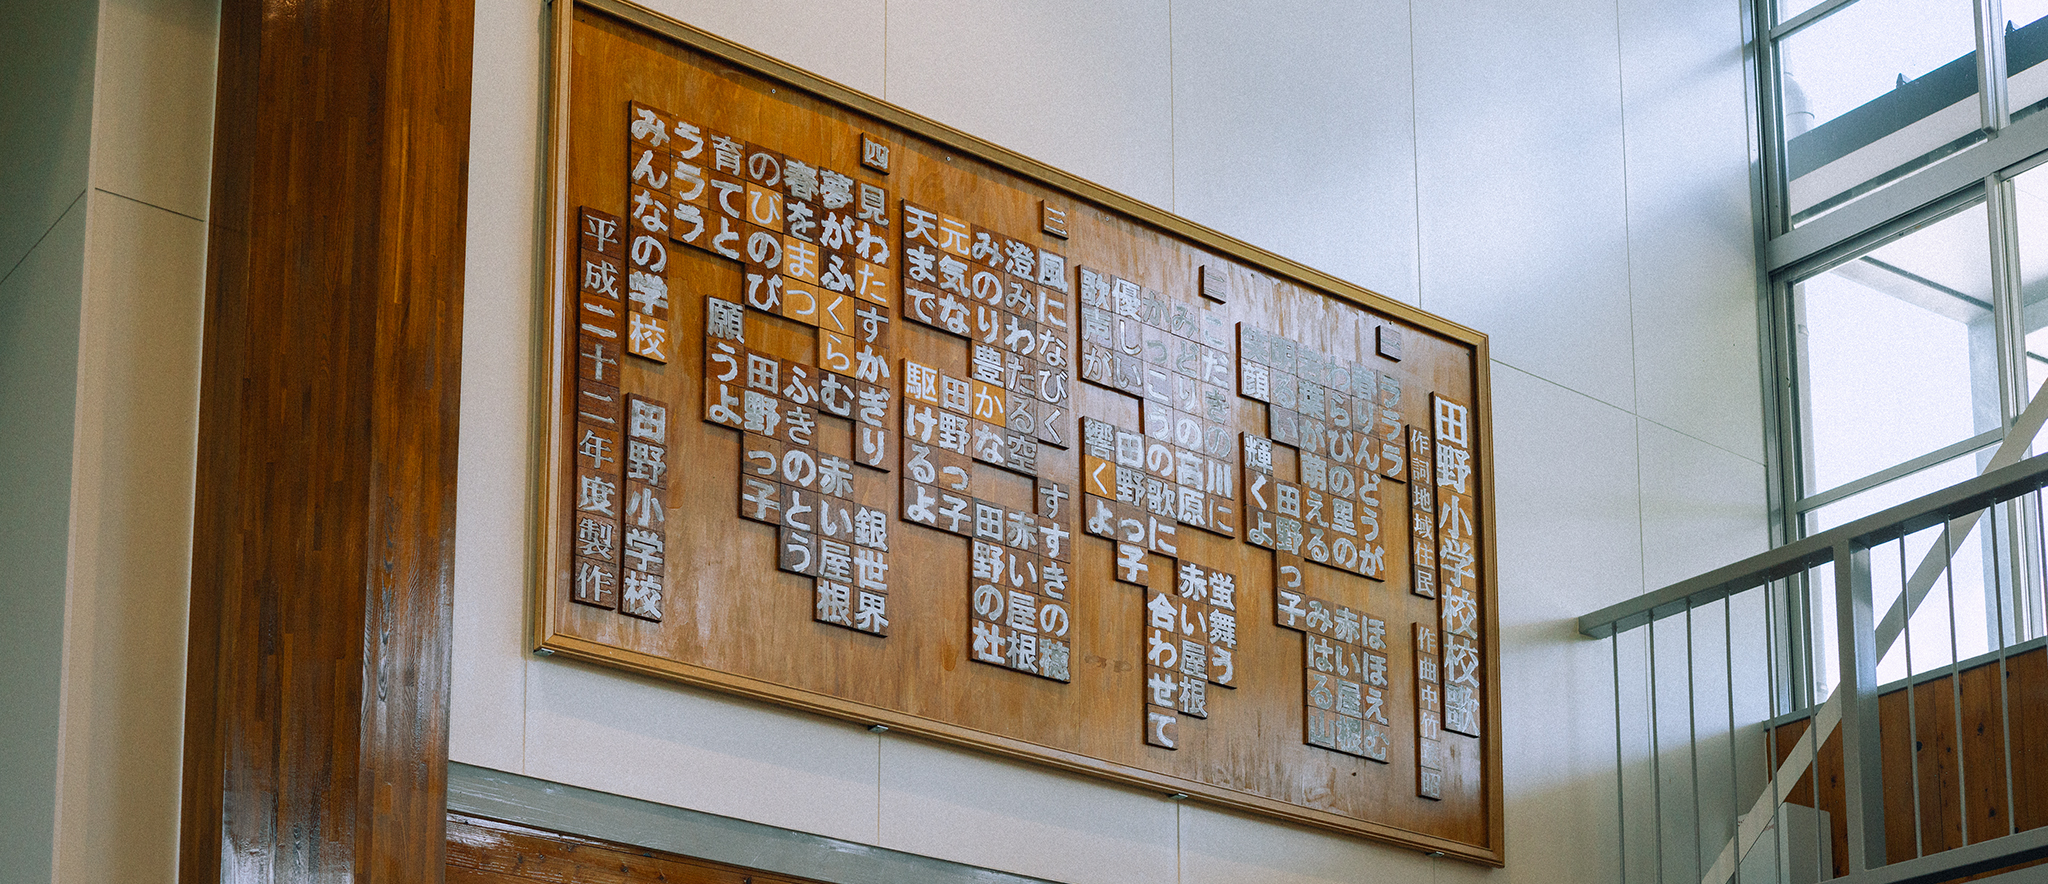 田野小学校校歌
作詞 地域住民 作曲 中竹
一
ラララ
春りんどうが ほほえむ
わらびの里の 赤い屋根
若葉が萌える みはる山
明るい 田野っ子
笑顔 輝くよ
二
の川に 蛍舞う
みどりの高原 赤い屋根
かっこうの歌に 合わせて
優しい 田野っ子
歌声が 響くよ
三
風になびく すすきの穂
澄みわたる空 赤い屋根
みのり豊かな 田野の杜
元気な 田野っ子
天まで 駆けるよ
四
見わたすかぎり 銀世界
夢がふくらむ 赤い屋根
春をまつ ふきのとう
のびのび 田野っ子
育てと 願うよ
ラララ
みんなの学校 田野小学校
平成二十二年度製作